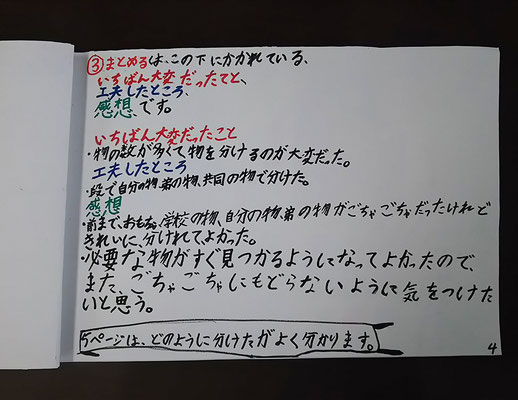 ③まとめるは、この下にかかれている、
いちばん大変だったてと、
工夫したところ、
感想、です。
いちばん大変だったこと
・物の数が多くて物を分けるのが大変だった。
工夫したところ
・段で自分の物、弟の物、共同の物で分けた。
感想
・前まで、おもちゃ、学校の物、自分の物、弟の物がごちゃごちゃだったけれど
きれいに、分けれてよかった。
・必要な物がすぐ見つかるようになってよかったので、
また、ごちゃごちゃにもどらないように気をつけた
いと思う。
5ページは、どのように分けたがよく分かります。
4